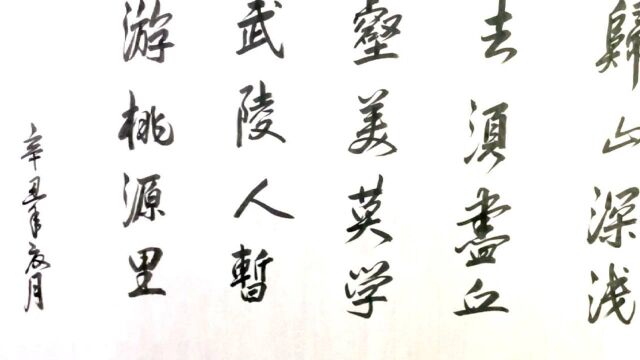 歸山深浅
去須盡丘
壑美莫学
武陵人暫
游桃源里
辛丑年夏月